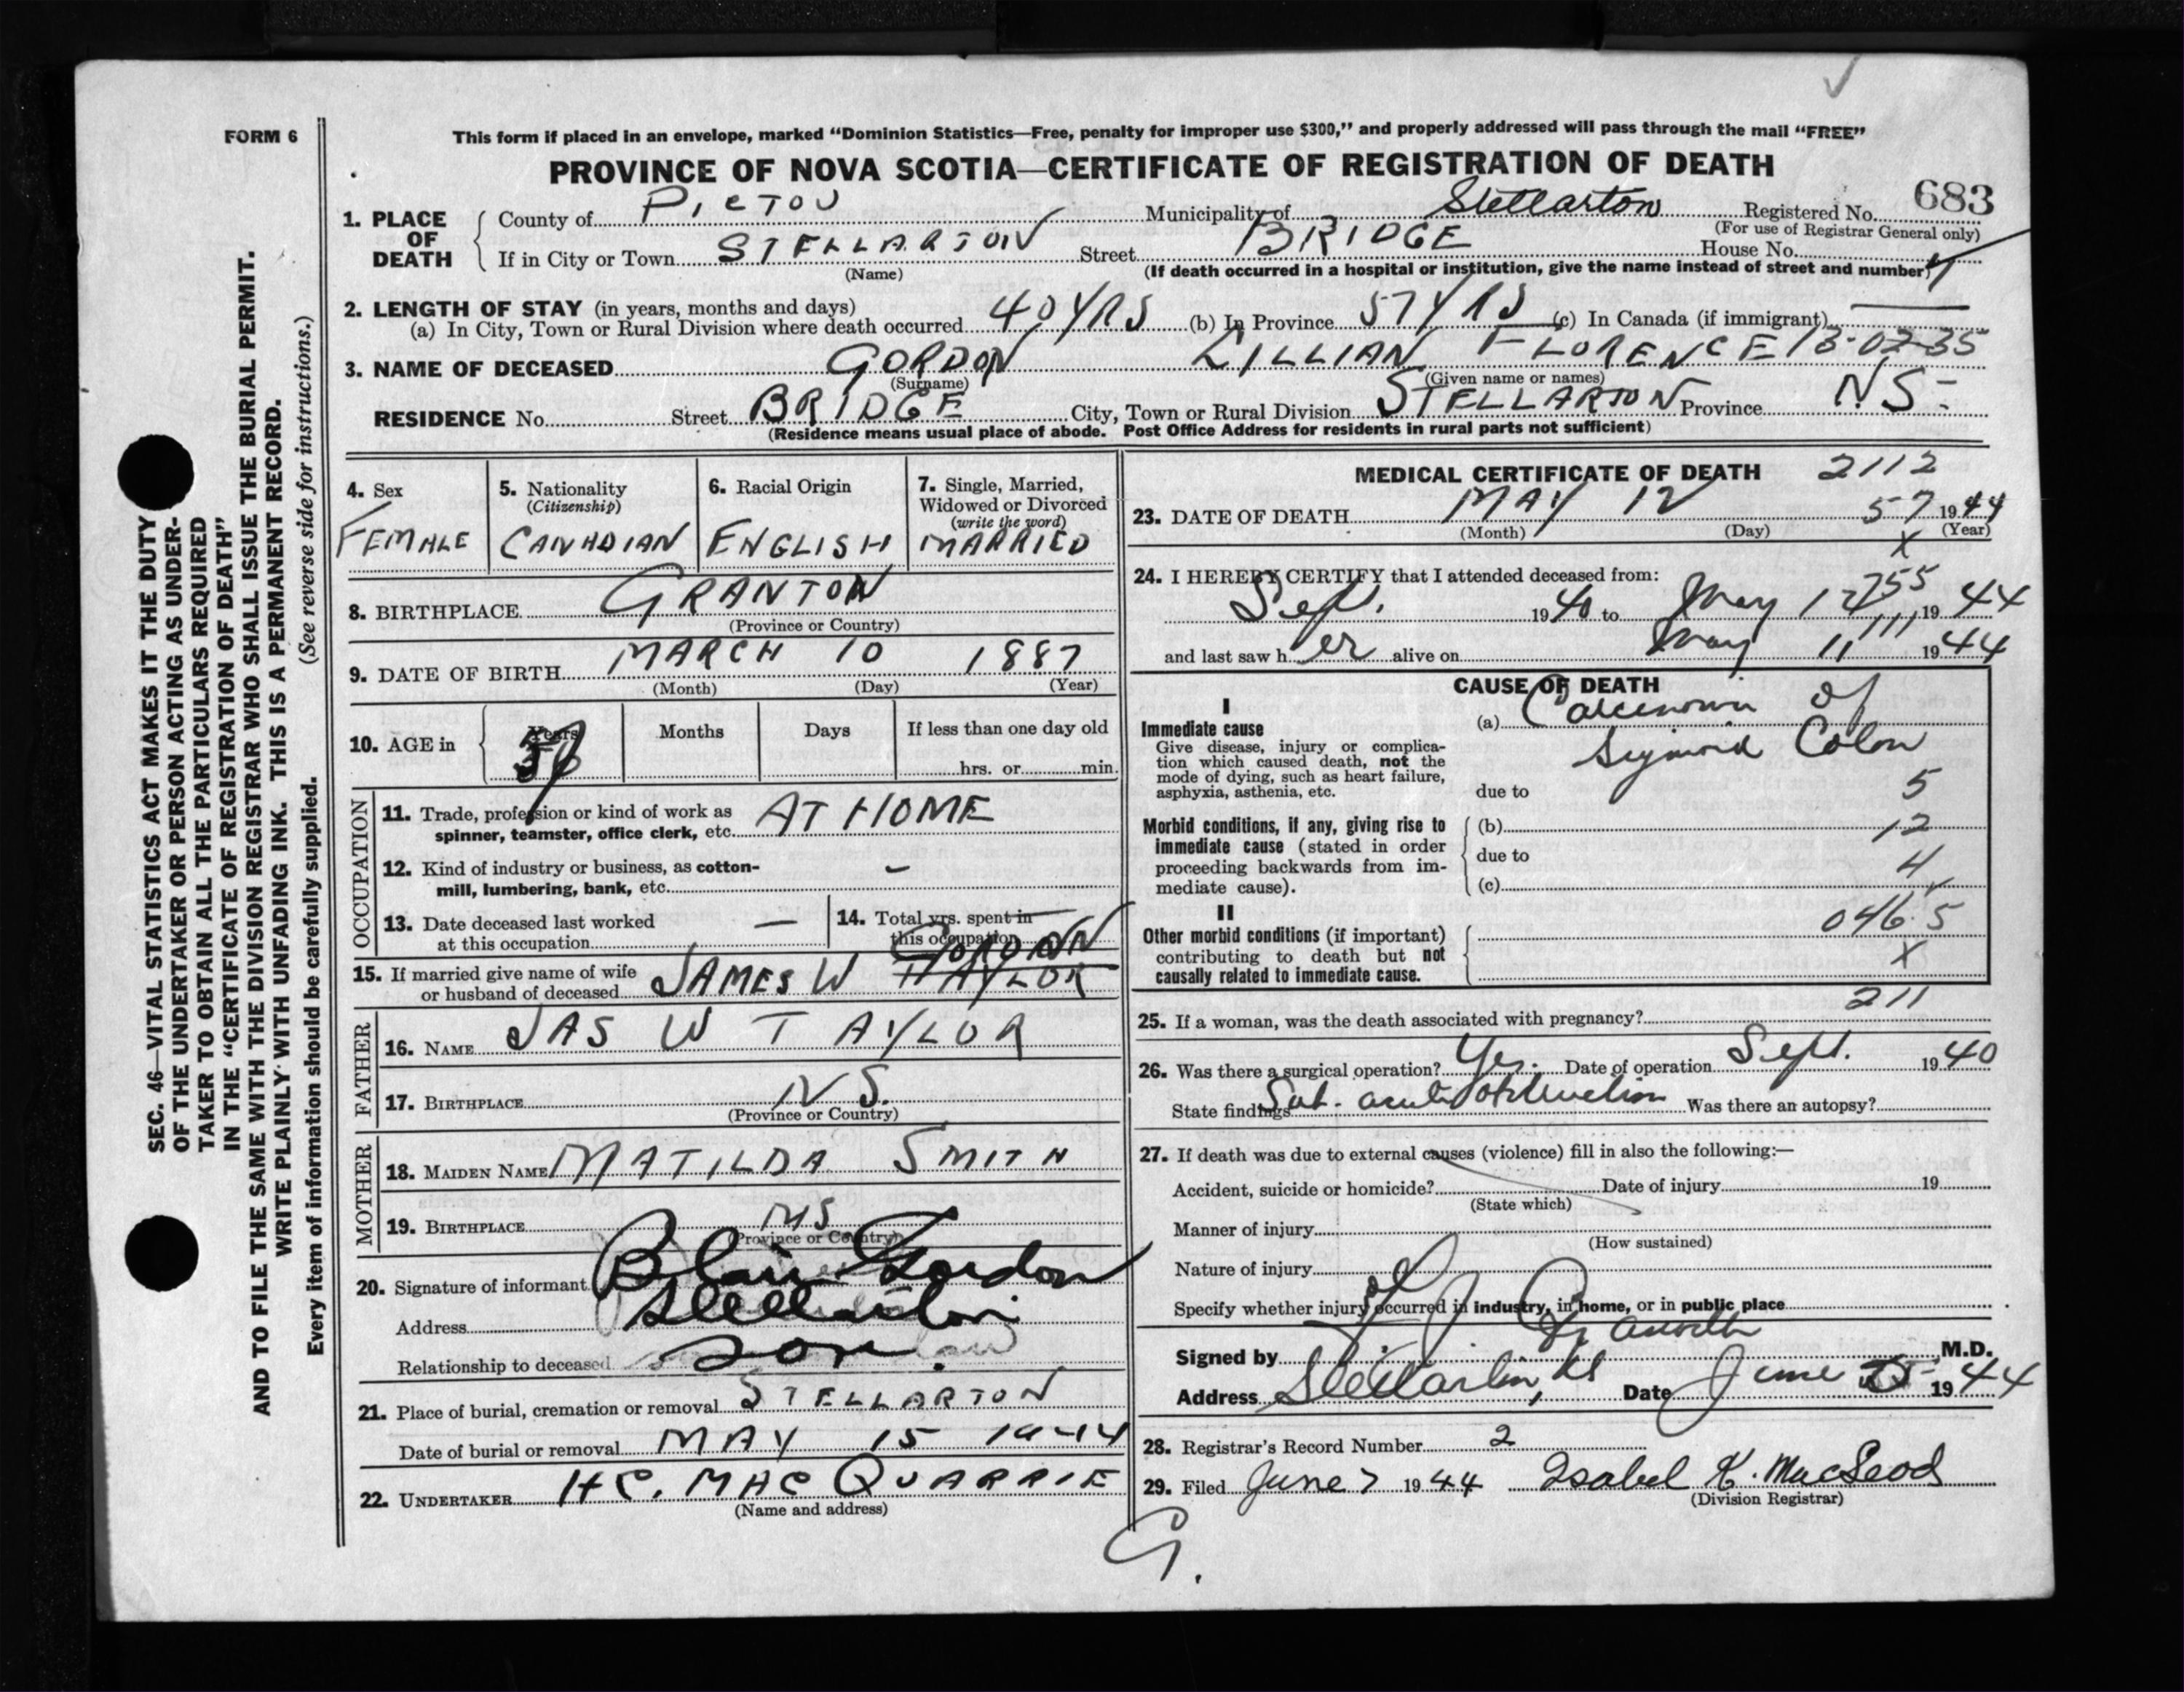 FORM 6
This form if placed in an envelope, marked "Dominion Statistics—Free, penalty for improper use $300," and properly addressed will pass through the mail "FREE"
PROVINCE OF NOVA SCOTIA—CERTIFICATE OF REGISTRATION OF DEATH
683
1. PLACE OF DEATH
County of PICTOU Municipality of Stellarton Registered No.
(For use of Registrar General only)
If in City or Town STELLARTON Street BRIDGE House No.
(Name) (If death occurred in a hospital or institution, give the name instead of street and number)
2. LENGTH OF STAY (in years, months and days)
(a) In City, Town or Rural Division where death occurred 40 YRS (b) In Province 57 YRS (c) In Canada (if immigrant)
3. NAME OF DECEASED GORDON LILLIAN FLORENCE 13-07-35
(Surname) (Given name or names)
RESIDENCE No. Street BRIDGE City, Town or Rural Division STELLARTON Province N.S.
(Residence means usual place of abode. Post Office Address for residents in rural parts not sufficient)
4. Sex
FEMALE
5. Nationality
(Citizenship)
CANADIAN
6. Racial Origin
ENGLISH
7. Single, Married,
Widowed or Divorced
(write the word)
MARRIED
8. BIRTHPLACE GRANTON
(Province or Country)
9. DATE OF BIRTH MARCH 10 1887
(Month) (Day) (Year)
10. AGE in Years Months Days If less than one day old
57 hrs. or min.
OCCUPATION
11. Trade, profession or kind of work as
spinner, teamster, office clerk, etc. AT HOME
12. Kind of industry or business, as cotton-
mill, lumbering, bank, etc. –
13. Date deceased last worked
at this occupation —
14. Total yrs. spent in
this occupation —
15. If married give name of wife
or husband of deceased JAMES W TAYLOR GORDON
FATHER
16. NAME JAS W TAYLOR
17. BIRTHPLACE N S.
(Province or Country)
MOTHER
18. MAIDEN NAME MATILDA SMITH
19. BIRTHPLACE NS
(Province or Country)
20. Signature of informant Blair Gordon
Address Stellarton
Relationship to deceased son.
21. Place of burial, cremation or removal STELLARTON
Date of burial or removal MAY 15 1944
22. UNDERTAKER H C. MACQUARRIE
(Name and address)
MEDICAL CERTIFICATE OF DEATH 2112
23. DATE OF DEATH MAY 12 57 1944
(Month) (Day) (Year)
X
24. I HEREBY CERTIFY that I attended deceased from:
755
Sept. 1940 to May 12 1944
and last saw her alive on May 11 1944
CAUSE OF DEATH
I
Immediate cause
Give disease, injury or complica-
tion which caused death, not the
mode of dying, such as heart failure,
asphyxia, asthenia, etc.
(a) Carcinoma of
Sigmoid Colon
due to 5
Morbid conditions, if any, giving rise to
immediate cause (stated in order
proceeding backwards from im-
mediate cause).
(b) 12
due to 4
(c)
II
Other morbid conditions (if important)
contributing to death but not
causally related to immediate cause.
046.5
X
211
25. If a woman, was the death associated with pregnancy?
26. Was there a surgical operation? Yes. Date of operation Sept. 1940
State findings Sub-acute obstruction Was there an autopsy?
27. If death was due to external causes (violence) fill in also the following:—
Accident, suicide or homicide? Date of injury 19
(State which)
Manner of injury
(How sustained)
Nature of injury
Specify whether injury occurred in industry, in home, or in public place
Signed by M.D.
Address Stellarton, NS Date June 1944
28. Registrar's Record Number 2
29. Filed June 7 1944 Isabel K. MacLeod
(Division Registrar)
G.
SEC. 46—VITAL STATISTICS ACT MAKES IT THE DUTY
OF THE UNDERTAKER OR PERSON ACTING AS UNDER-
TAKER TO OBTAIN ALL THE PARTICULARS REQUIRED
IN THE "CERTIFICATE OF REGISTRATION OF DEATH"
AND TO FILE THE SAME WITH THE DIVISION REGISTRAR WHO SHALL ISSUE THE BURIAL PERMIT.
WRITE PLAINLY WITH UNFADING INK. THIS IS A PERMANENT RECORD.
Every item of information should be carefully supplied. (See reverse side for instructions.)